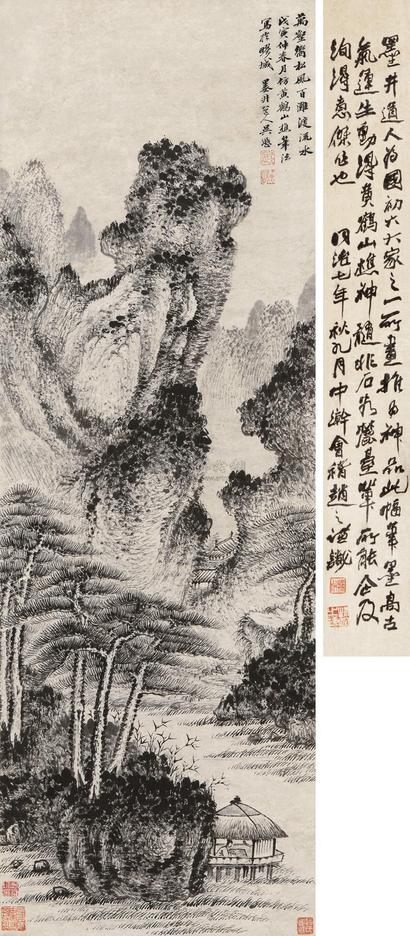 萬壑響松風百灘渡流水
戊寅仲春月仿黃鶴山樵筆法
寫於
墨井道人吳歷
墨井道人為國初六大家之一所畫推為神品此幅筆墨高古
氣運生動得黃鶴山樵神髓非石谷麓臺輩所能企及
洵得意傑作也
同治七年秋九月中澣會稽趙之謙識